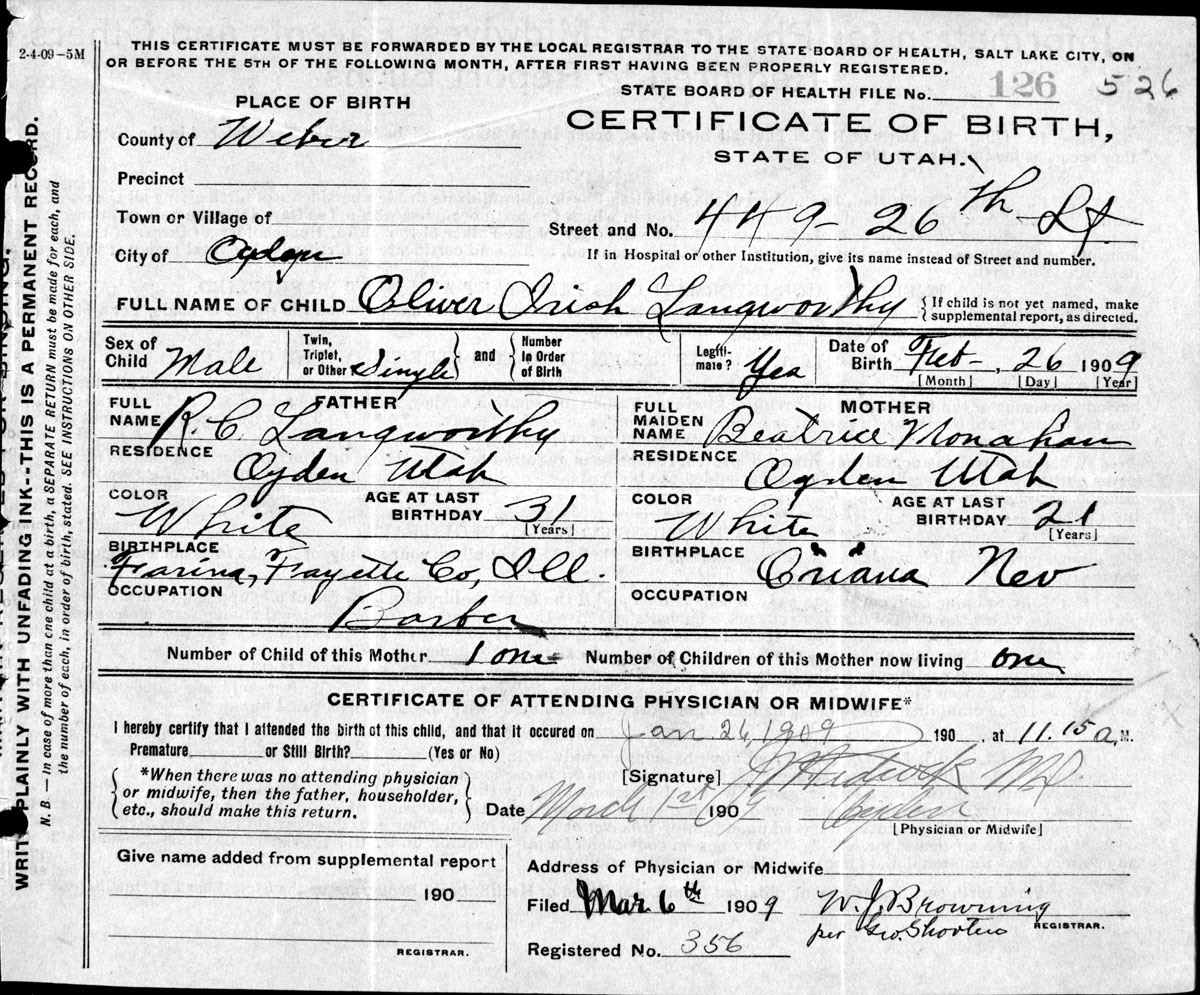 2-4-09-5M
THIS CERTIFICATE MUST BE FORWARDED BY THE LOCAL REGISTRAR TO THE STATE BOARD OF HEALTH, SALT LAKE CITY, ON
OR BEFORE THE 5TH OF THE FOLLOWING MONTH, AFTER FIRST HAVING BEEN PROPERLY REGISTERED.
STATE BOARD OF HEALTH FILE No. 126 526
PLACE OF BIRTH
CERTIFICATE OF BIRTH,
STATE OF UTAH.
County of Weber
Precinct
Town or Village of
Street and No. 449-26th St
City of Ogden
If in Hospital or other Institution, give its name instead of Street and number.
FULL NAME OF CHILD Oliver Irish Langworthy
{If child is not yet named, make
supplemental report, as directed.
Sex of Child Male
Twin, Triplet, or Other Single } and { Number In Order of Birth
Legiti-mate? Yes
Date of Birth Feb-, 26 1909
[Month] [Day] [Year]
FATHER
FULL NAME R. C. Langworthy
RESIDENCE Ogden Utah
COLOR White
AGE AT LAST BIRTHDAY 31 [Years]
BIRTHPLACE Farina, Fayette Co, Ill.
OCCUPATION Barber
MOTHER
FULL MAIDEN NAME Beatrice Monahan
RESIDENCE Ogden Utah
COLOR White
AGE AT LAST BIRTHDAY 21 [Years]
BIRTHPLACE Oriana Nev
OCCUPATION
Number of Child of this Mother 1 one Number of Children of this Mother now living one
CERTIFICATE OF ATTENDING PHYSICIAN OR MIDWIFE*
I hereby certify that I attended the birth of this child, and that it occured on Jan 26, 1909 190 , at 11.15 a, M.
Premature or Still Birth? (Yes or No)
{*When there was no attending physician
or midwife, then the father, householder,
etc., should make this return.}
[Signature] MD.
Date March 1st /09 190 Ogden
[Physician or Midwife]
Give name added from supplemental report
190
REGISTRAR.
Address of Physician or Midwife
Filed Mar 6th 1909 W. J. Browning
REGISTRAR.
per Geo. Shorten
Registered No. 356
WRITE PLAINLY WITH UNFADING INK--THIS IS A PERMANENT RECORD.
N. B.—In case of more then cne child at a birth, a SEPARATE RETURN must be made for each, and
the number of each, in order of birth, stated. SEE INSTRUCTIONS ON OTHER SIDE.